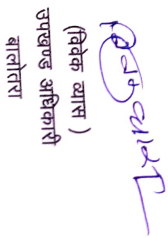 (विवेक व्यास)
उपखण्ड अधिकारी
बालोतरा